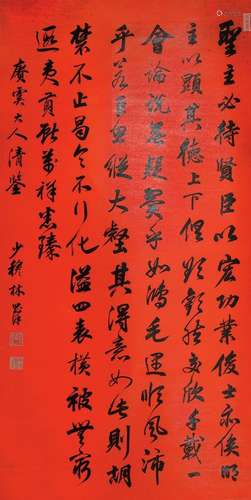 聖主必待賢臣以宏功業俊士亦俟明
主以顯其德上下俱欲歡然交欣千載一
會論說無疑翼乎如鴻毛遇順風沛
乎若巨魚縱大壑其得意如此則胡
禁不止曷令不行化溢四表橫被無窮
遐夷貢獻萬祥畢臻
賡雲大人清鑒
少穆林則徐